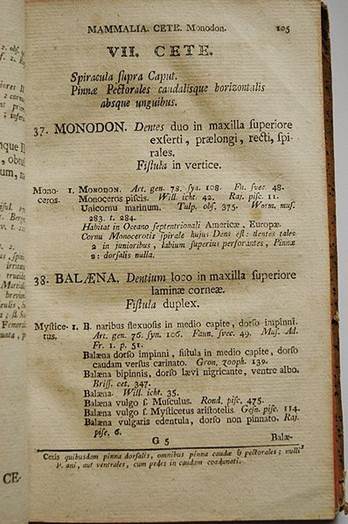 MAMMALIA. CETE. Monodon. 105
VII. CETE.
Spiracula supra Caput.
Pinnæ Pectorales caudalisque horizontalis
absque unguibus.
37. MONODON. Dentes duo in maxilla superiore
exserti, prælongi, recti, spi-
rales.
Fistula in vertice.
Mono- 1. MONODON. Art. gen. 78. syn. 108. Fn. svec. 48.
ceros. Monoceros piscis. Will. icht. 42. Raj. pisc. 11.
Unicornu marinum. Tulp. obs. 375. Worm. mus.
283. t. 284.
Habitat in Oceano septentrionali Americæ, Europæ.
Cornu Monocerotis spirale hujus Dens est: dentes tales
2 in junioribus, labium superius perforantes, Pinna
2: dorsalis nulla.
38. BALÆNA. Dentium loco in maxilla superiore
laminæ corneæ.
Fistula duplex.
Mystice- 1. B. naribus flexuosis in medio capite, dorso impinni.
tus. Art. gen. 76. syn. 106. Faun. svec. 49. Mus. Ad.
Fr. 1. p. 51.
Balæna dorso impinni, fistula in medio capite, dorso
caudam versus carinato. Gron. zooph. 139.
Balæna bipinnis, dorso lævi nigricante, ventre albo.
Briss. cet. 347.
Balæna. Will. icht. 35.
Balæna vulgo s. Musculus. Rond. pisc. 475.
Balæna vulgo s. Mysticetus aristotelis. Gesn. pisc. 114.
Balæna vulgaris edentula, dorso non pinnato. Raj.
pisc. 6.
G 5 Balæ-
Cetis quibusdam pinna dorsalis, omnibus pinna caudæ & pectorales; nulli
P. ani, aut ventrales, cum pedes in caudam coadunati.
CE-